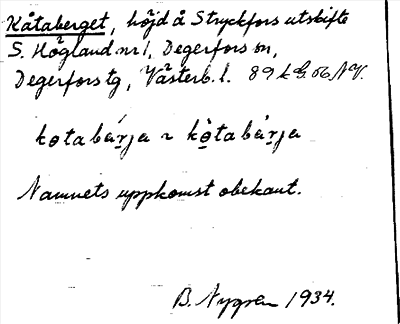 Kåtaberget, höjd å Stryckfors utskifte
S. Högland nr 1, Degerfors sn,
Degerfors tg, Västerb. l.
kotabárja ~ kòtabárja
Namnets uppkomst obekant.
B. Nygren 1934.